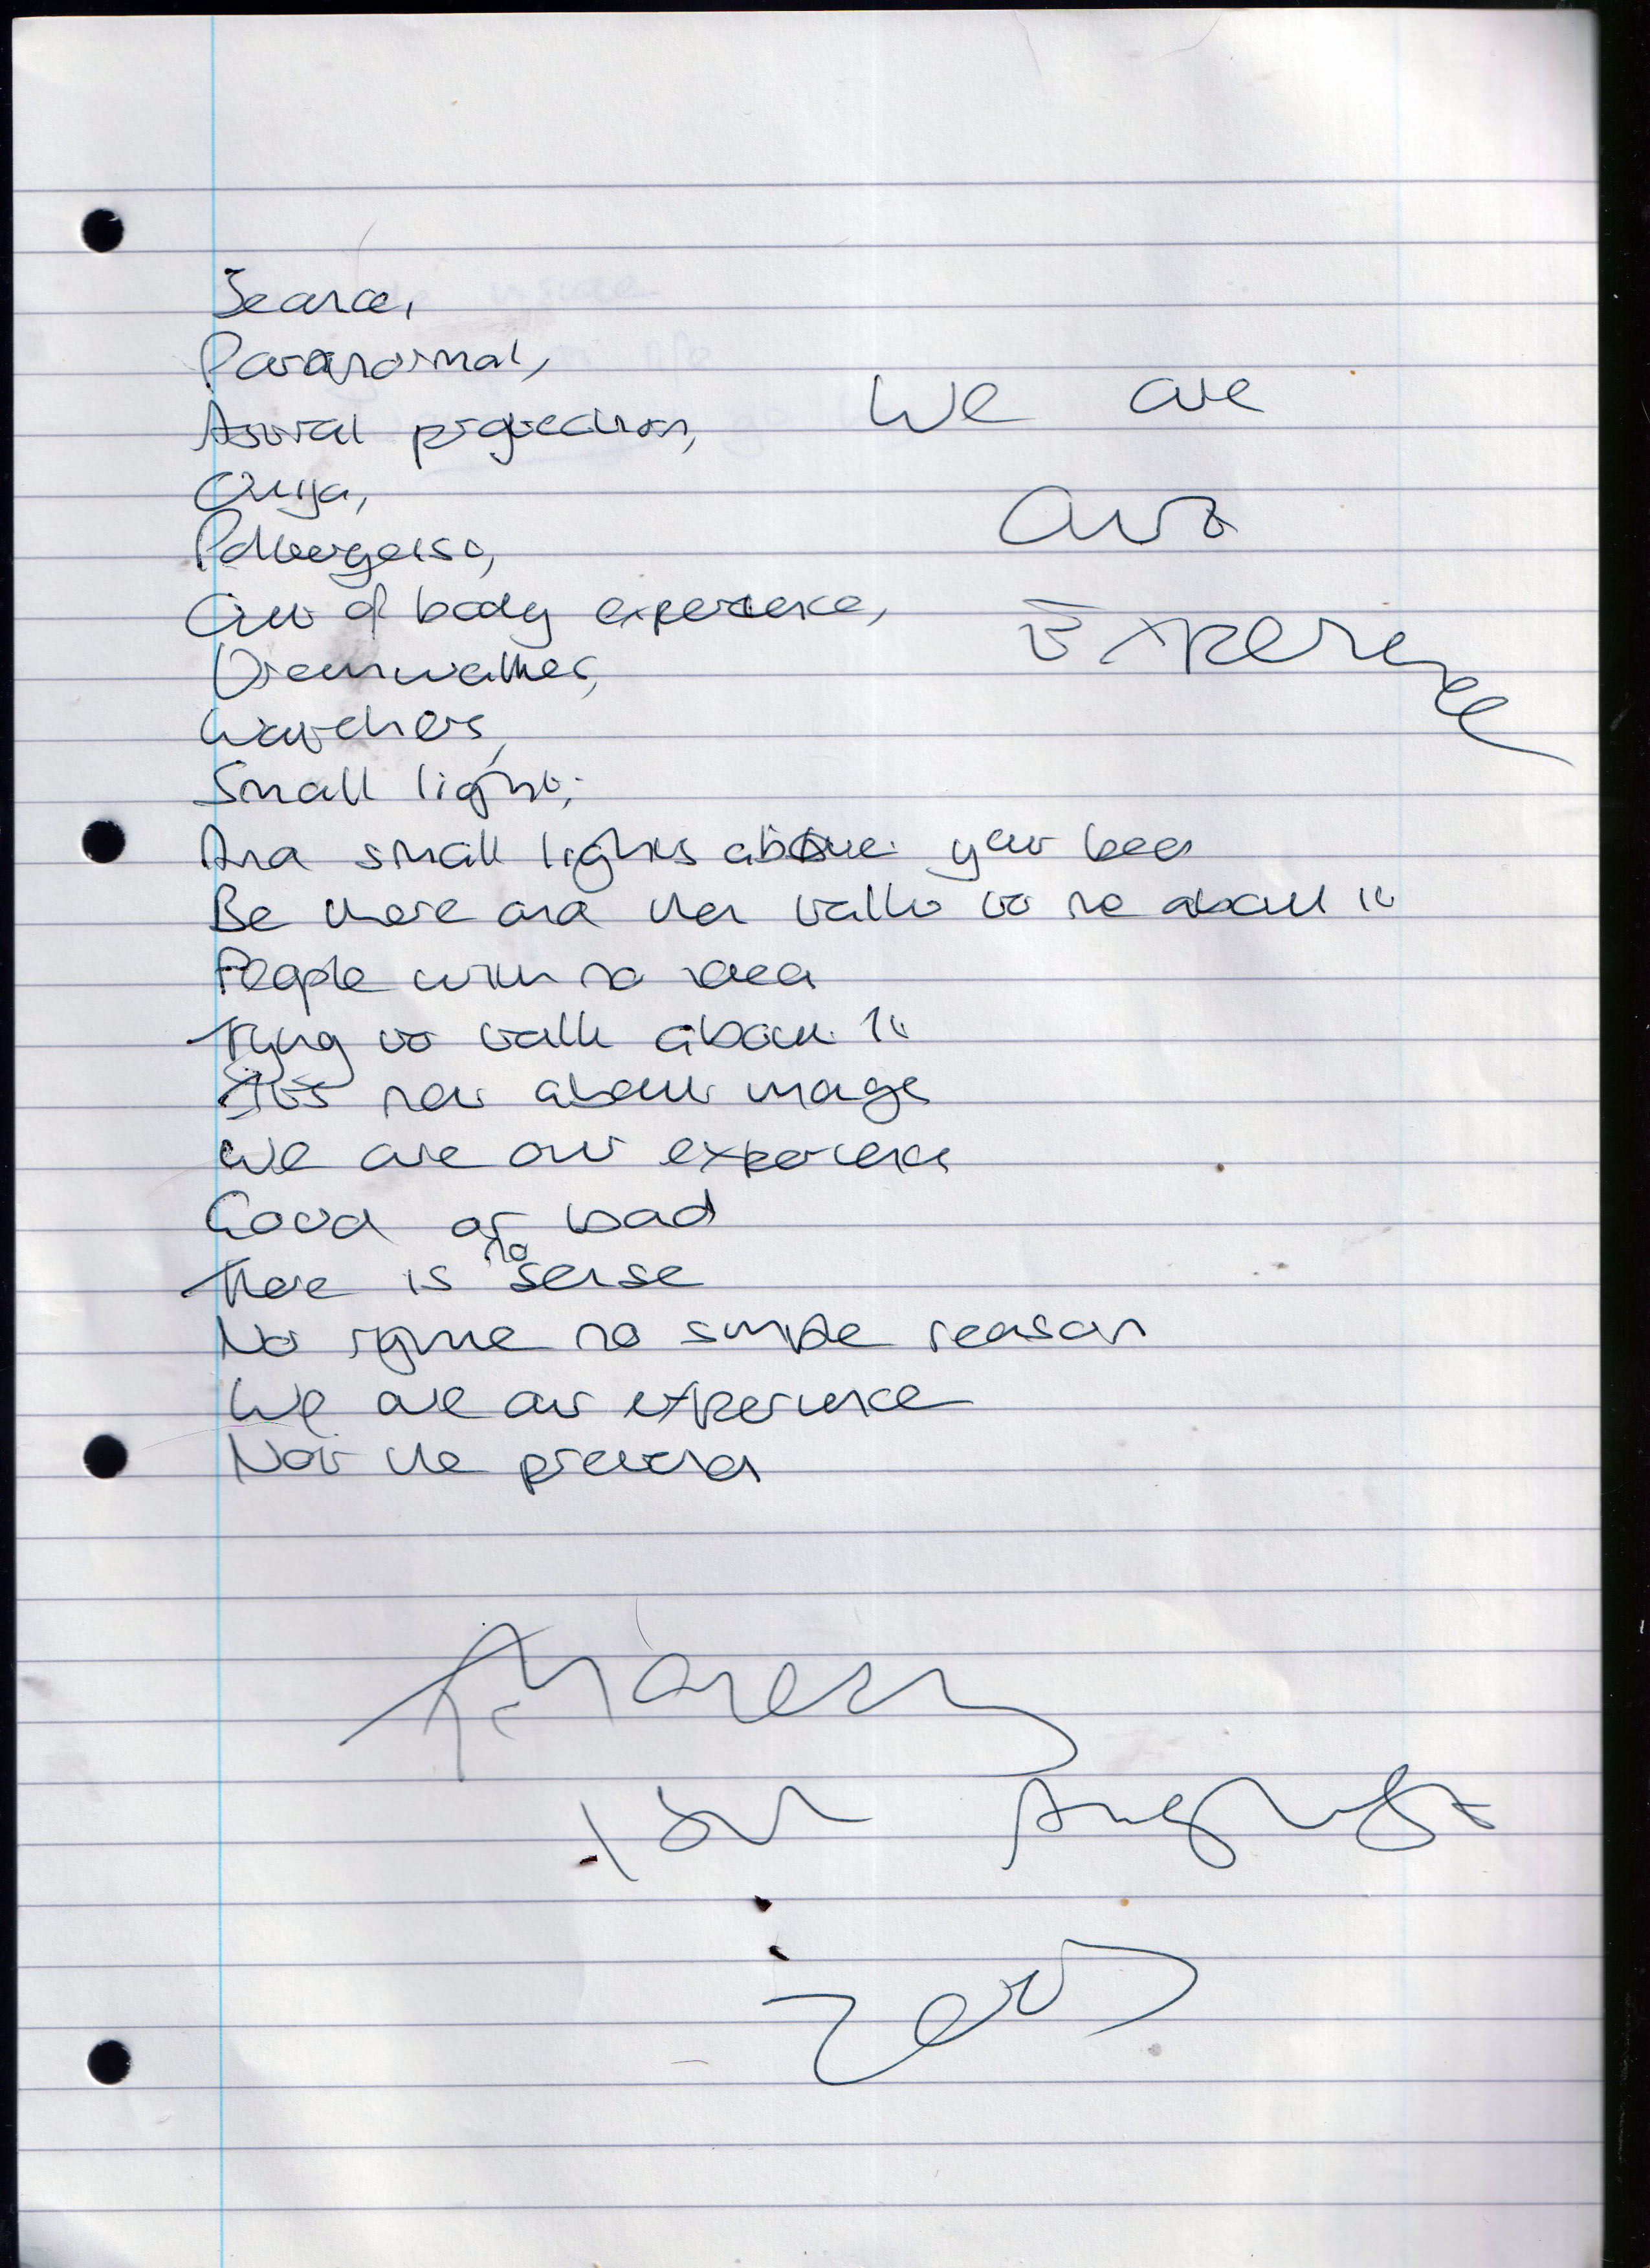 Seance,
Paranormal,
Astral projection,
Ouija,
Poltergeist,
Out of body experience,
Dreamwalker,
Watchers,
Small light,
And small lights above your bed
Be there and then talk to me about it
People with no idea
Trying to talk about it
Its not about image
We are our experience
Good or bad
There is no sense
No ryme no simple reason
We are our experience
Not the pretend
We are
Our
Experience
August